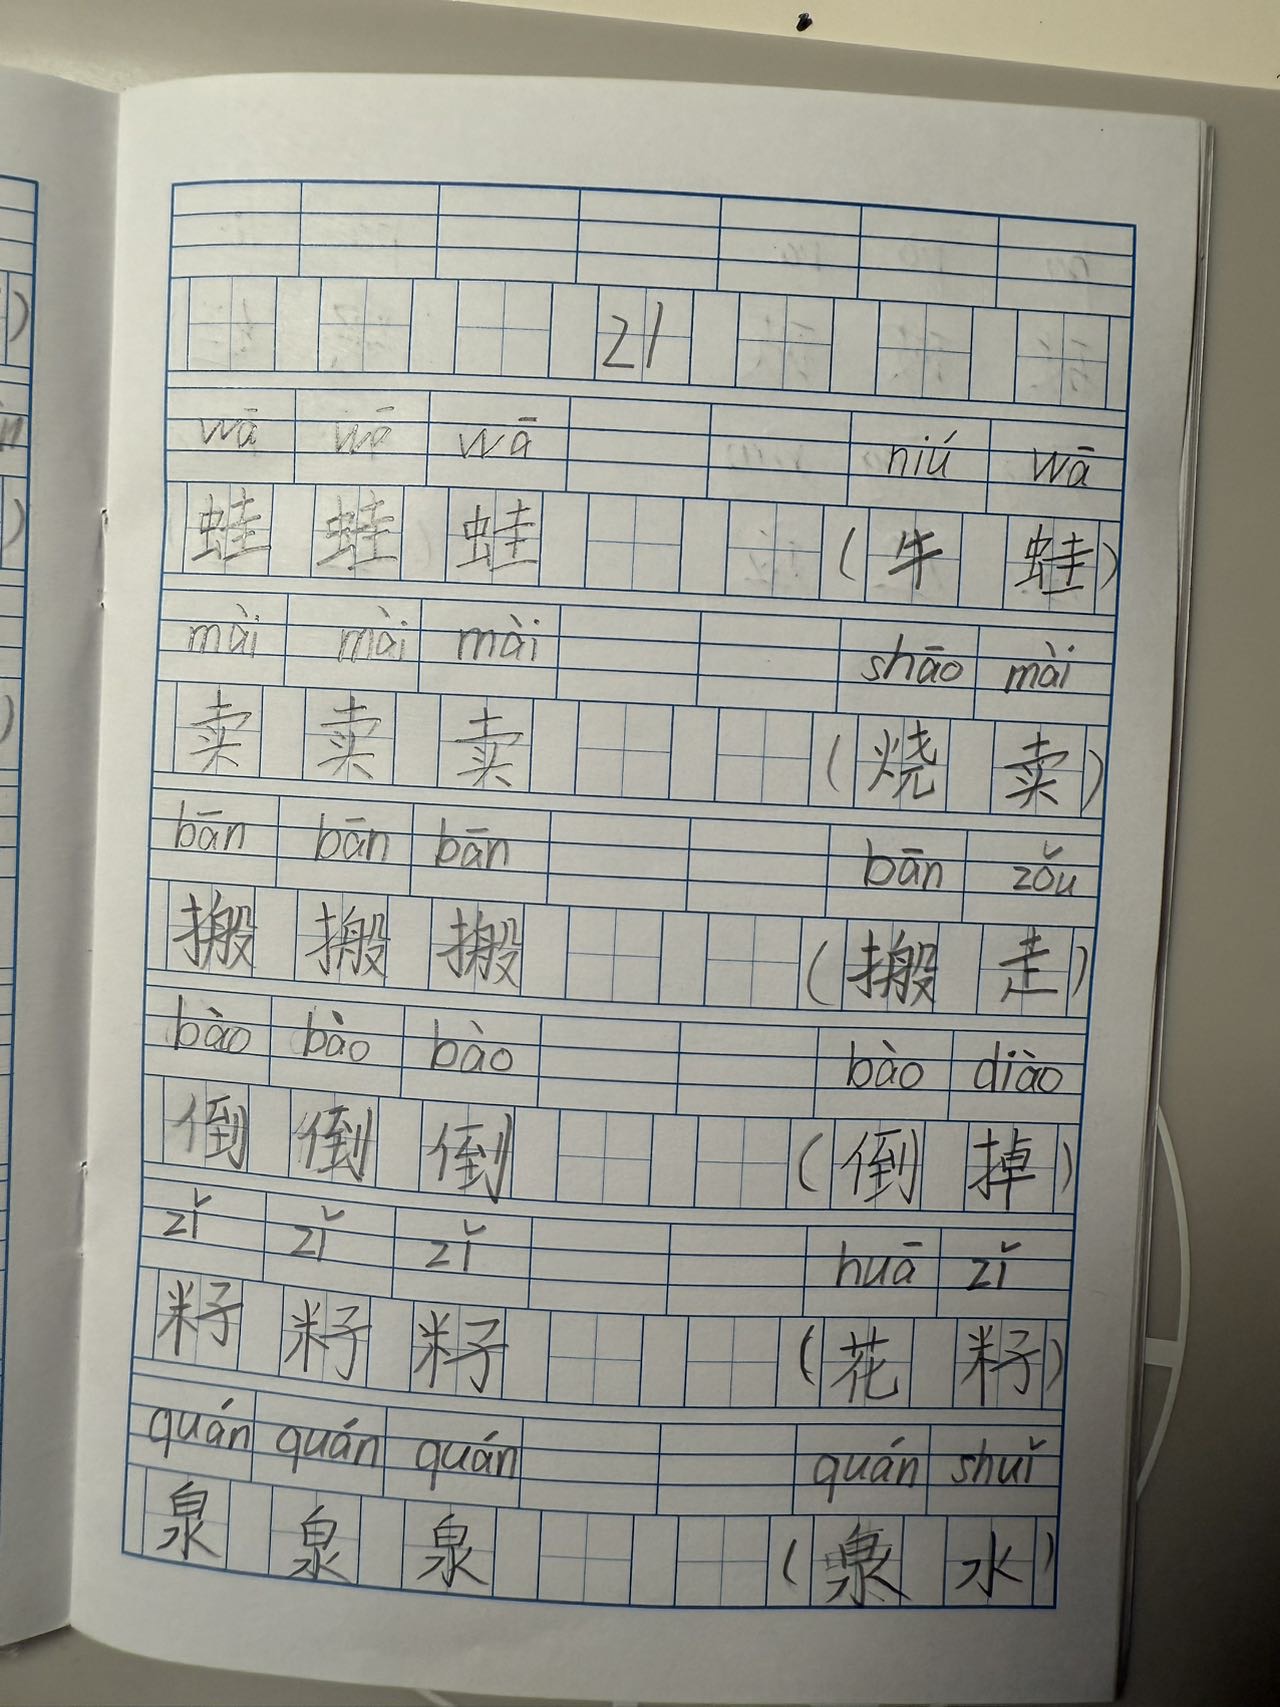 21
wā wā wā niú wā
蛙 蛙 蛙 (牛 蛙)
mài mài mài shāo mài
卖 卖 卖 (烧 卖)
bān bān bān bān zǒu
搬 搬 搬 (搬 走)
bào bào bào bào diào
倒 倒 倒 (倒 掉)
zǐ zǐ zǐ huā zǐ
籽 籽 籽 (花 籽)
quán quán quán quán shuǐ
泉 泉 泉 (泉 水)